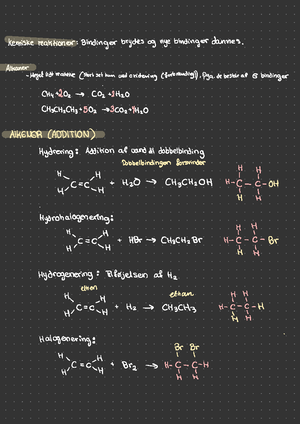 Kemiske reaktioner: Bindinger brydes og nye bindinger dannes.
Alkaner
- Meget lidt reaktive (stort set kun ved oxidering (forbrænding)). Pga. de består af σ bindinger
CH₄ + 2O₂ → CO₂ + 2H₂O
CH₃CH₂CH₃ + 5O₂ → 3CO₂ + 4H₂O
ALKENER (ADDITION)
Hydrering: Addition af vand til dobbeltbinding
Dobbeltbindingen forsvinder
H H C=C H H + H₂O → CH₃CH₂OH H H H-C-C-OH H H
Hydrohalogenering:
H H C=C H H + HBr → CH₃CH₂Br H H H-C-C-Br H H
Hydrogenering: Tilføjelsen af H₂
ethen ethan
H H C=C H H + H₂ → CH₃CH₃ H H H-C-C-H H H
Halogenering:
H H C=C H H + Br₂ → Br Br H-C-C-H H H